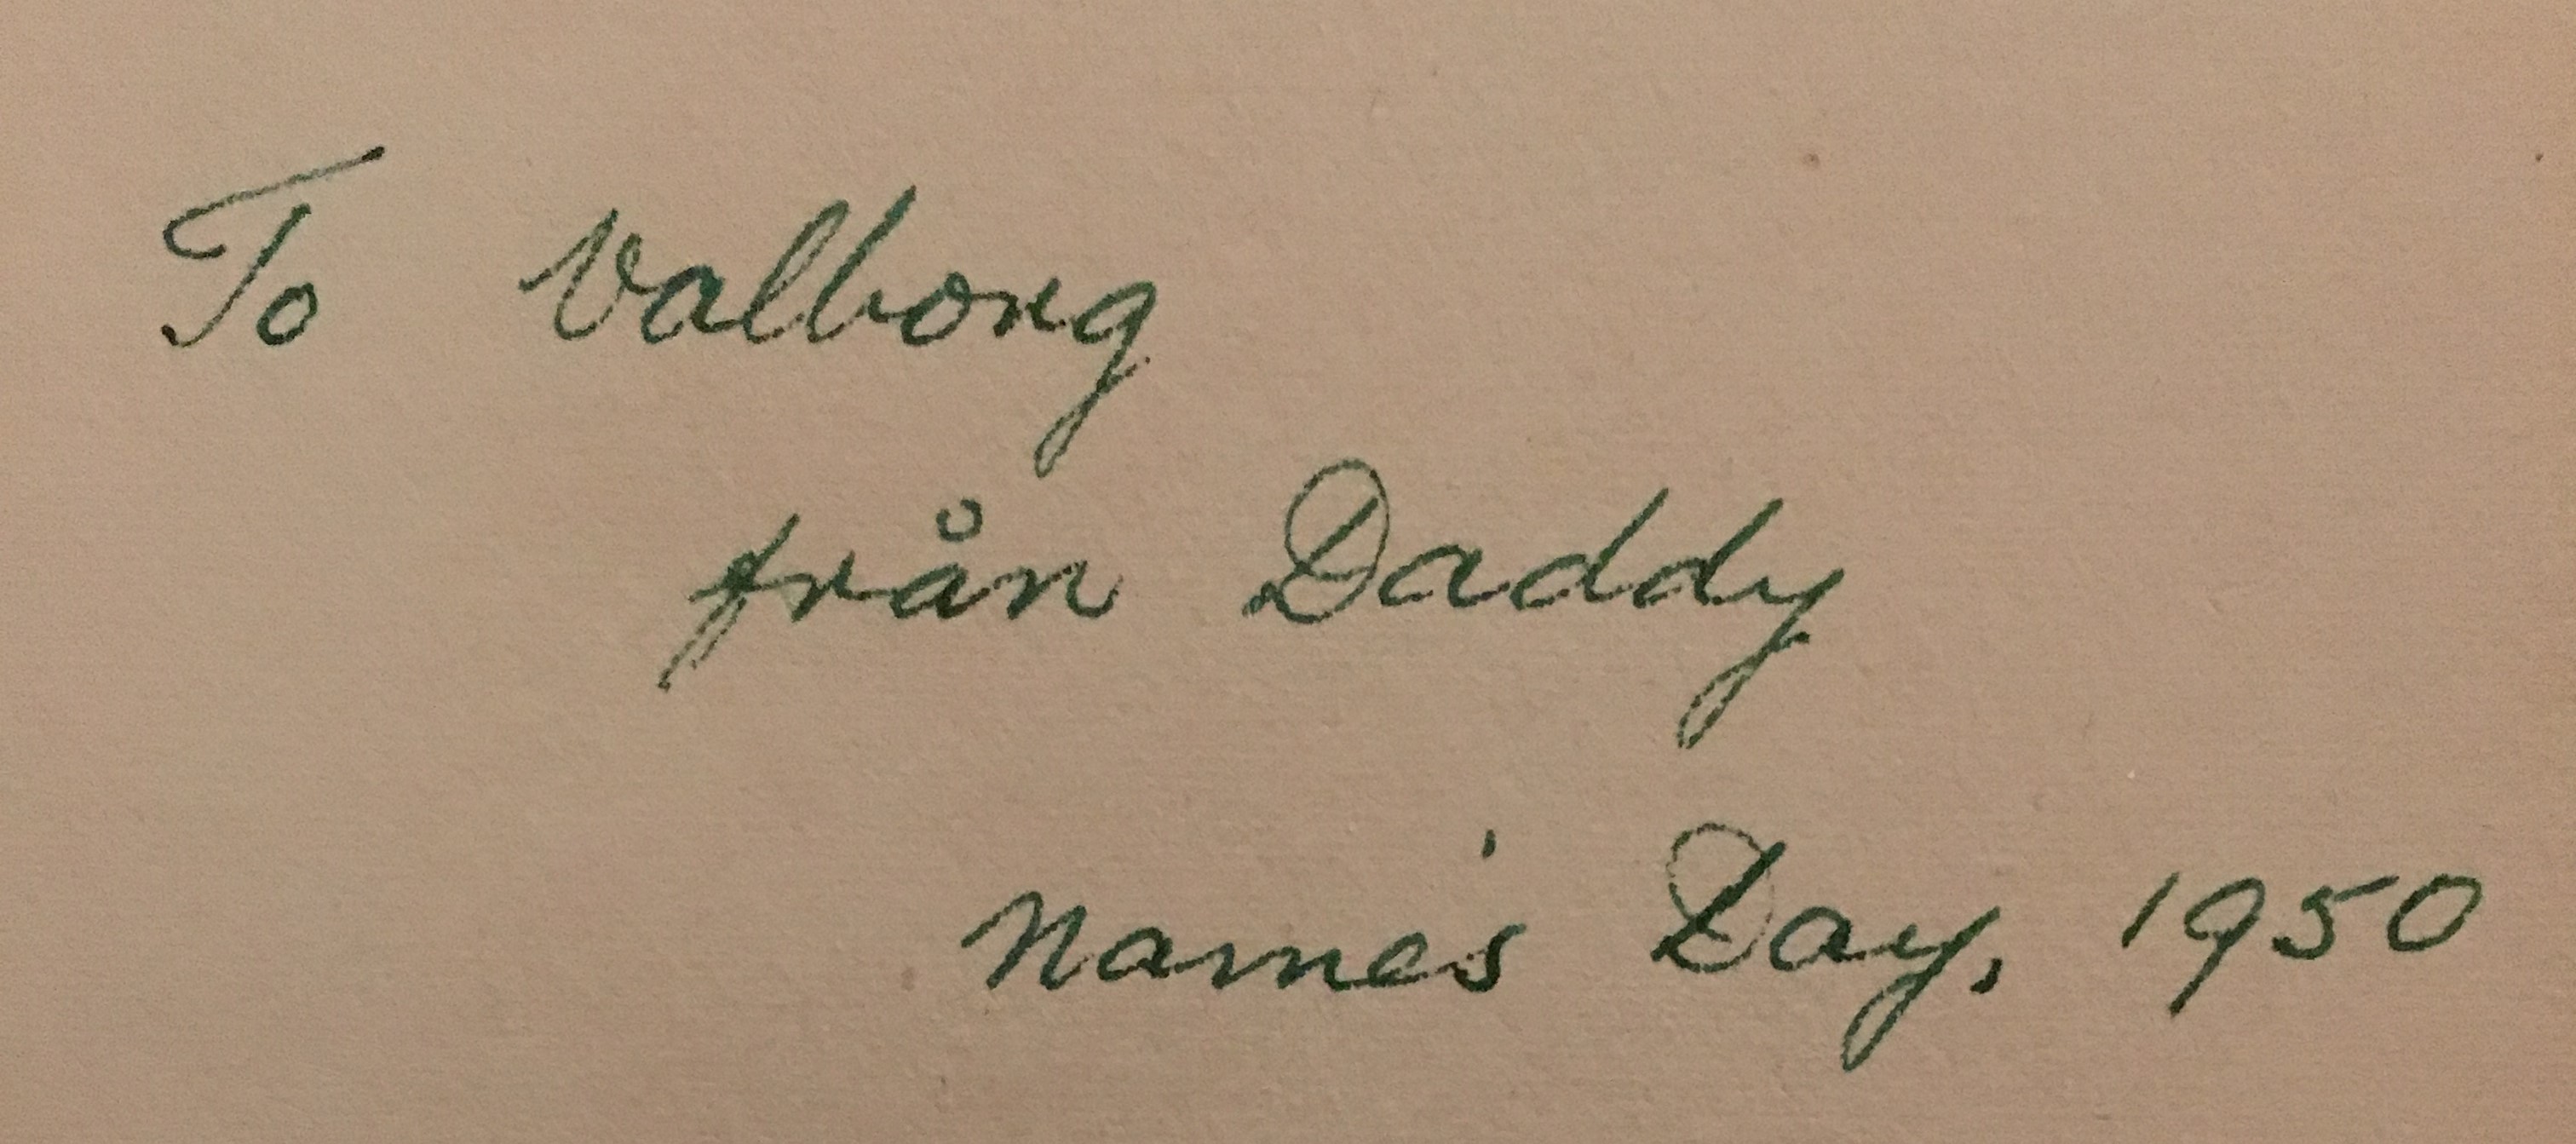 To Valborg
från Daddy
Name's Day, 1950